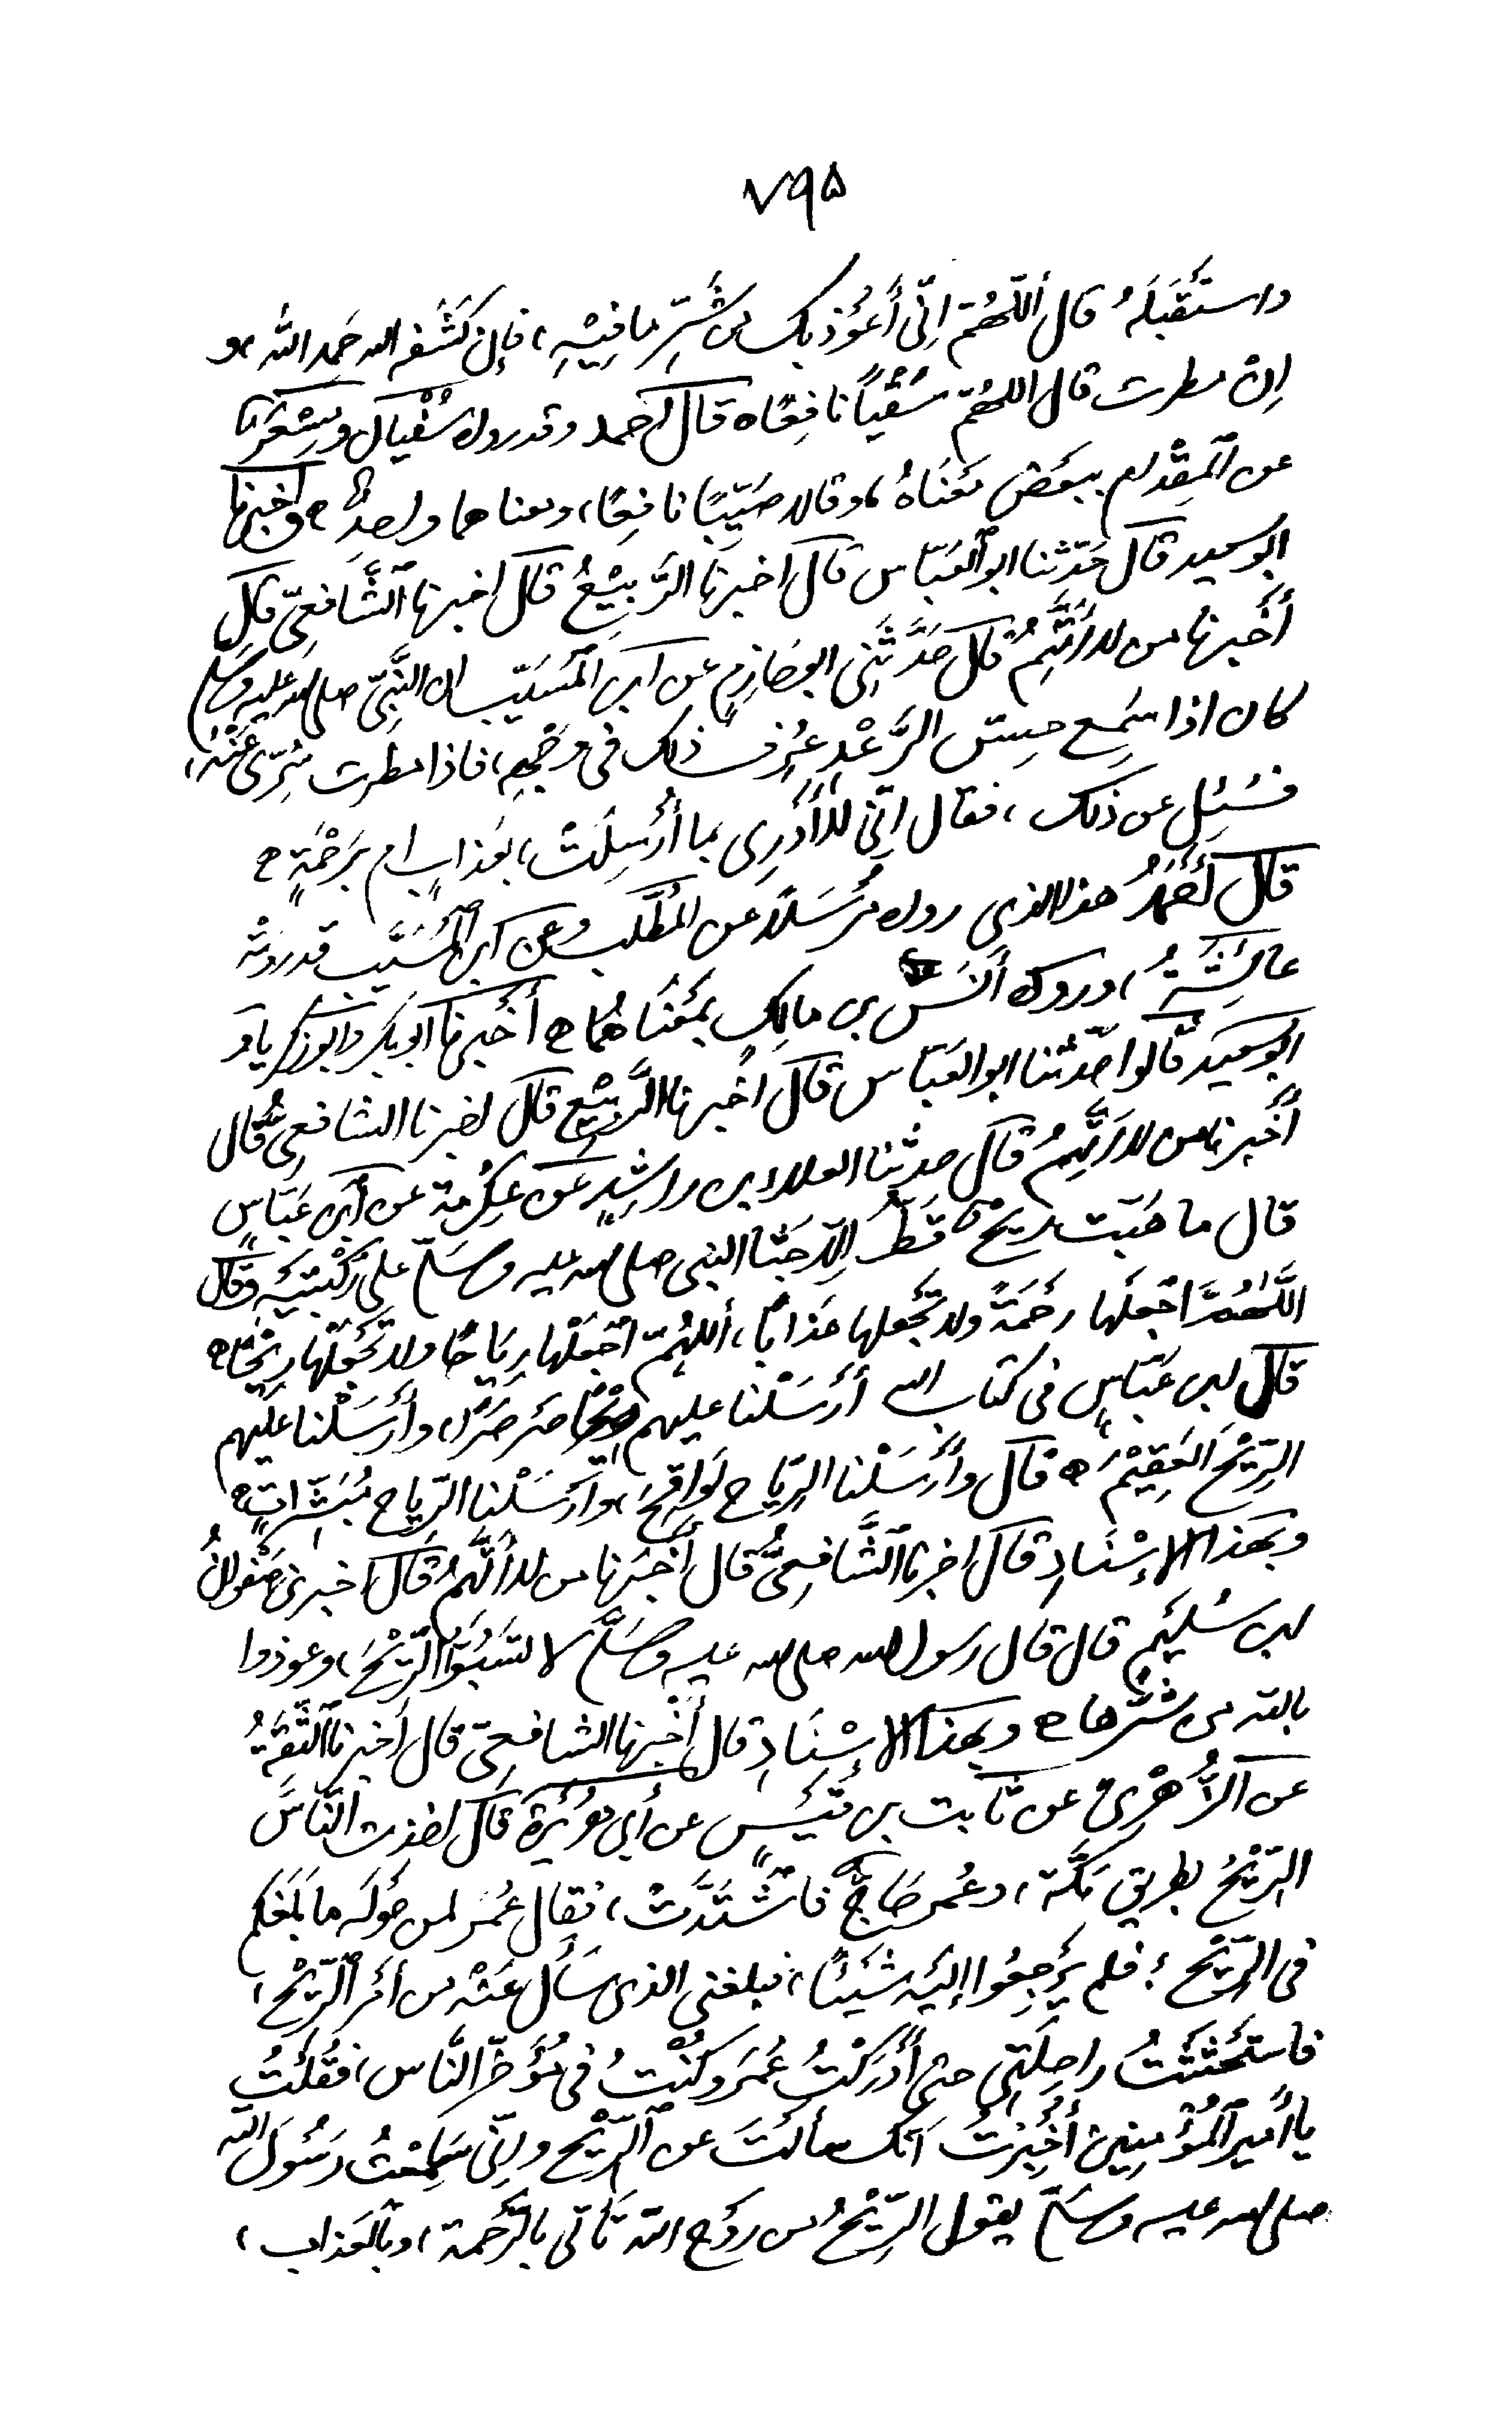 ٧٩٥
واستَقْبَلَهُ قال أللّهُمّ اِنّى أَعُوْذ بك من شَرِّ ما فِيْهِ، فإن كَشَفه الله حَمِد اللهَ، و
اِن مطرت قال اللهُمّ سَقْيًا نافِعًا ه قال احمد وقد رواه سُفْيان ومِسْعَر
عن الْمِقْدام ببعض مَعْنَاهُ، وقالا صَيِّبًا نافِعًا، ومعناهما واحدٌ ه واخبرنا
ابوسعيد قال حَدّثنا ابو الْعَبّاس قال اخبرنا الرَّبِيْعُ قال اخبرنا الشَّافعىّ قال
أَخْبرنا من لا أَتَّهِمُ قال حَدَّثَنِى ابو حَازِمٍ عن ابن الْمُسَيّب ان النَّبِىَّ صلى الله عليه وسلم
كان اذا سَمِع حِسّ الرَّعْدِ عُرِف ذلك فى وَجْهِهِ، فاذا مطَرت سُرِّىَ عَنْهُ،
فسُئِل عن ذلك، فقال اِنّى لا أَدْرِى بما أُرْسِلَتْ، بعَذابٍ ام بِرَحْمَةٍ ه
قال أَحْمَدُ هذا الذى رواه مُرْسَلًا عن المُطَّلب وعن ابن الْمُسَيَّب قد رَوَتْه
عَائِشَةُ، ورواه أَنَسُ بن مالِك بمَعْنَاهُمَا ه أَخْبرنا ابو بكر وابو زكريا و
ابوسعيد قالوا حَدّثنا ابو العَبّاس قال أخبرنا الرَّبِيْع قال اخبرنا الشافعىُّ قال
أَخْبرنا من لا أَتَّهِمُ قال حدثنا العلاء بن راشِدٍ عن عِكْرِمة عن ابن عَبّاسٍ
قال ما هَبّت رِيْحٌ قَطُّ إلّا جَثَا النبى صلى الله عليه وسَلّم على رُكْبَتَيْه وقال
اللَّهُمَّ اجْعَلها رحْمَةً ولا تَجْعلها عَذابًا، أللهُمّ اجْعَلْها رِيَاحًا ولا تَجْعَلْها رِيْحًا ه
قال ابن عَبّاسٍ فى كتاب الله أَرْسَلْنا عليهم رِيْحًا صَرْصَرًا، وأَرْسَلْنا عليهم
الرِّيْحَ العَقِيْمَ ه قال وأَرْسَلْنا الرِّيَاح لَوَاقِحَ، وأَرْسَلْنا الرِّياح مُبَشِّراتٍ ه
وبهذا الإسْنَادِ قال اخبرنا الشَّافِعِىُّ قال أَخْبَرنا من لا أَتَّهِمُ قال اخبرنى صَفْوانُ
ابن سُلَيْمٍ قال قال رسول الله صلى الله عليه وسَلَّم لا تَسُبُّوا الرِّيْحَ، وعوذوا
بالله من شَرِّها ه وبهذا الإسْنَادِ قال أَخْبرنا الشافعىّ قال أَخبرنا الثِّقَةُ
عن الزُّهْرِىّ عن ثابت بن قَيْسٍ عن أبى هُرَيْرَةَ قال اخذت النَّاسَ
الرِّيْحُ بطريق مَكَّة، وعُمر حَاجٌّ فاشْتَدَّتْ، فقال عُمَر لمن حَوْله ما بَلَغكم
فى الرِّيْح؟ فلم يَرْجِعُوا إليْه شَيْئًا، فبلغنى الذى سَأل عَنْه من أَمْر الرِّيْح،
فاستَحْثَثْتُ راحِلَتِى حتى أَدْرَكْتُ عُمَر وكُنْتُ فى مُؤَخّر النَّاس، فقُلْتُ
يا أَمير المُؤْمنِين أُخْبِرْتُ انّك سألْتَ عن الرِّيْح واِنّى سَمِعْتُ رَسُولَ الله
صلى الله عليه وسَلّم يقول الرِّيْحُ من رَوْح الله تَأتى بالرَّحْمة، وبالعَذاب،